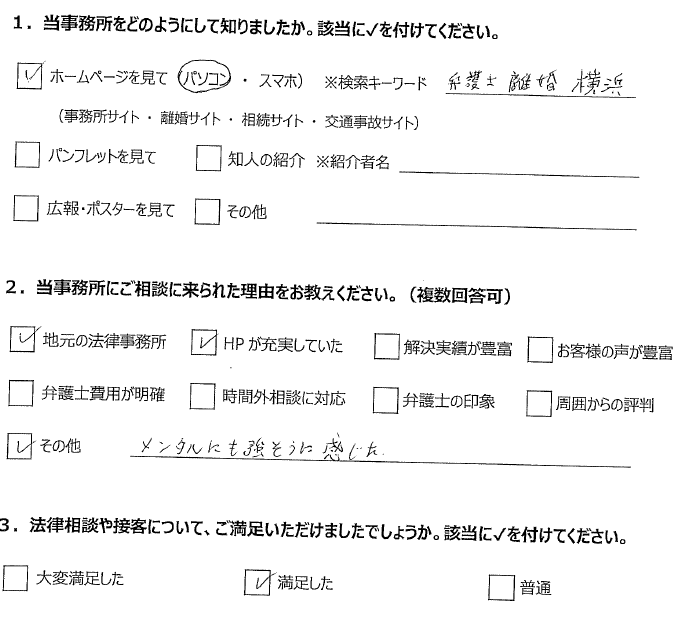 1．当事務所をどのようにして知りましたか。該当に✓を付けてください。
☑ ホームページを見て（パソコン ・ スマホ） ※検索キーワード 弁護士 離婚 横浜
（事務所サイト ・ 離婚サイト ・ 相続サイト ・ 交通事故サイト）
☐ パンフレットを見て ☐ 知人の紹介 ※紹介者名
☐ 広報・ポスターを見て ☐ その他
2．当事務所にご相談に来られた理由をお教えください。（複数回答可）
☑ 地元の法律事務所 ☑ HPが充実していた ☐ 解決実績が豊富 ☐ お客様の声が豊富
☐ 弁護士費用が明確 ☐ 時間外相談に対応 ☐ 弁護士の印象 ☐ 周囲からの評判
☑ その他 メンタルにも強そうに感じた
3．法律相談や接客について、ご満足いただけましたでしょうか。該当に✓を付けてください。
☐ 大変満足した ☑ 満足した ☐ 普通